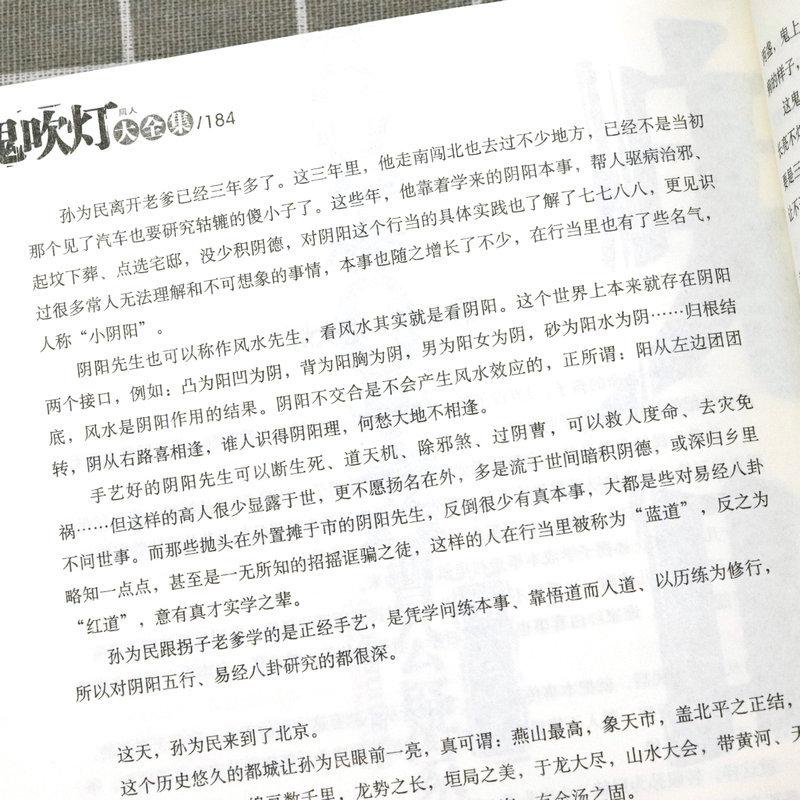 鬼吹灯 同人 大全集 /184
孙为民离开老爹已经三年多了。这三年里，他走南闯北也去过不少地方，已经不是当初
那个见了汽车也要研究轱辘的傻小子了。这些年，他靠着学来的阴阳本事，帮人驱病治邪、
起坟下葬、点选宅邸，没少积阴德，对阴阳这个行当的具体实践也了解了七七八八，更见识
过很多常人无法理解和不可想象的事情，本事也随之增长了不少，在行当里也有了些名气，
人称“小阴阳”。
阴阳先生也可以称作风水先生，看风水其实就是看阴阳。这个世界上本来就存在阴阳
两个接口，例如：凸为阳凹为阴，背为阳胸为阴，男为阳女为阴，砂为阳水为阴……归根结
底，风水是阴阳作用的结果。阴阳不交合是不会产生风水效应的，正所谓：阳从左边团团
转，阴从右路喜相逢，谁人识得阴阳理，何愁大地不相逢。
手艺好的阴阳先生可以断生死、道天机、除邪煞、过阴曹，可以救人度命、去灾免
祸……但这样的高人很少显露于世，更不愿扬名在外，多是流于世间暗积阴德，或深归乡里
不问世事。而那些抛头在外置摊于市的阴阳先生，反倒很少有真本事，大都是些对易经八卦
略知一点点，甚至是一无所知的招摇诓骗之徒，这样的人在行当里被称为“蓝道”，反之为
“红道”，意有真才实学之辈。
孙为民跟拐子老爹学的是正经手艺，是凭学问练本事、靠悟道而入道、以历练为修行，
所以对阴阳五行、易经八卦研究的都很深。
这天，孙为民来到了北京。
这个历史悠久的都城让孙为民眼前一亮，真可谓：燕山最高，象天市，盖北平之正结，
数千里，龙势之长，垣局之美，干龙大尽，山水大会，带黄河、天
有金汤之固。
所蛊，鬼上
的样子，
这鬼
要是三
让不